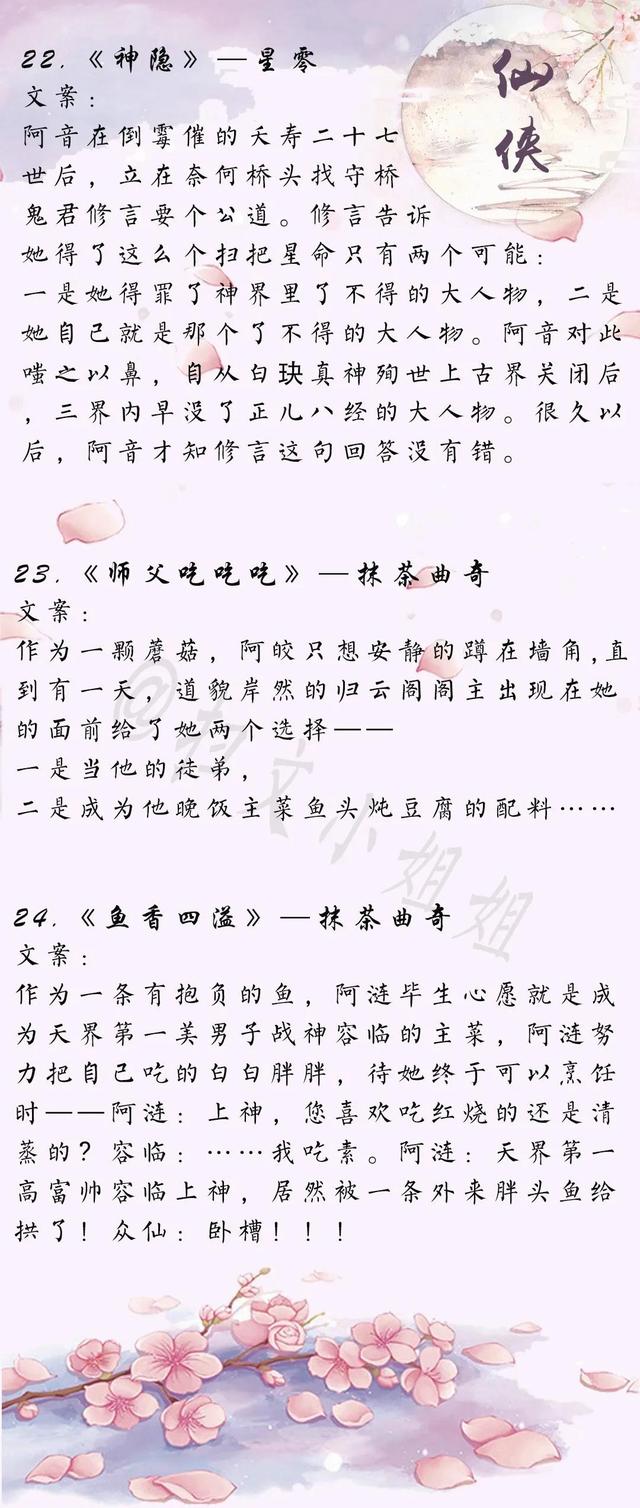 仙侠
22.《神隐》—星零
文案：
阿音在倒霉催的夭寿二十七
世后，立在奈何桥头找守桥
鬼君修言要个公道。修言告诉
她得了这么个扫把星命只有两个可能：
一是她得罪了神界里了不得的大人物，二是
她自己就是那个了不得的大人物。阿音对此
嗤之以鼻，自从白玦真神殉世上古界关闭后
，三界内早没了正儿八经的大人物。很久以
后，阿音才知修言这句回答没有错。
23.《师父吃吃吃》—抹茶曲奇
文案：
作为一颗蘑菇，阿皎只想安静的蹲在墙角,直
到有一天，道貌岸然的归云阁阁主出现在她
的面前给了她两个选择——
一是当他的徒弟，
二是成为他晚饭主菜鱼头炖豆腐的配料……
@扫文小姐姐
24.《鱼香四溢》—抹茶曲奇
文案：
作为一条有抱负的鱼，阿涟毕生心愿就是成
为天界第一美男子战神容临的主菜，阿涟努
力把自己吃的白白胖胖，待她终于可以烹饪
时——阿涟：上神，您喜欢吃红烧的还是清
蒸的？容临：……我吃素。阿涟：天界第一
高富帅容临上神，居然被一条外来胖头鱼给
拱了！众仙：卧槽！！！